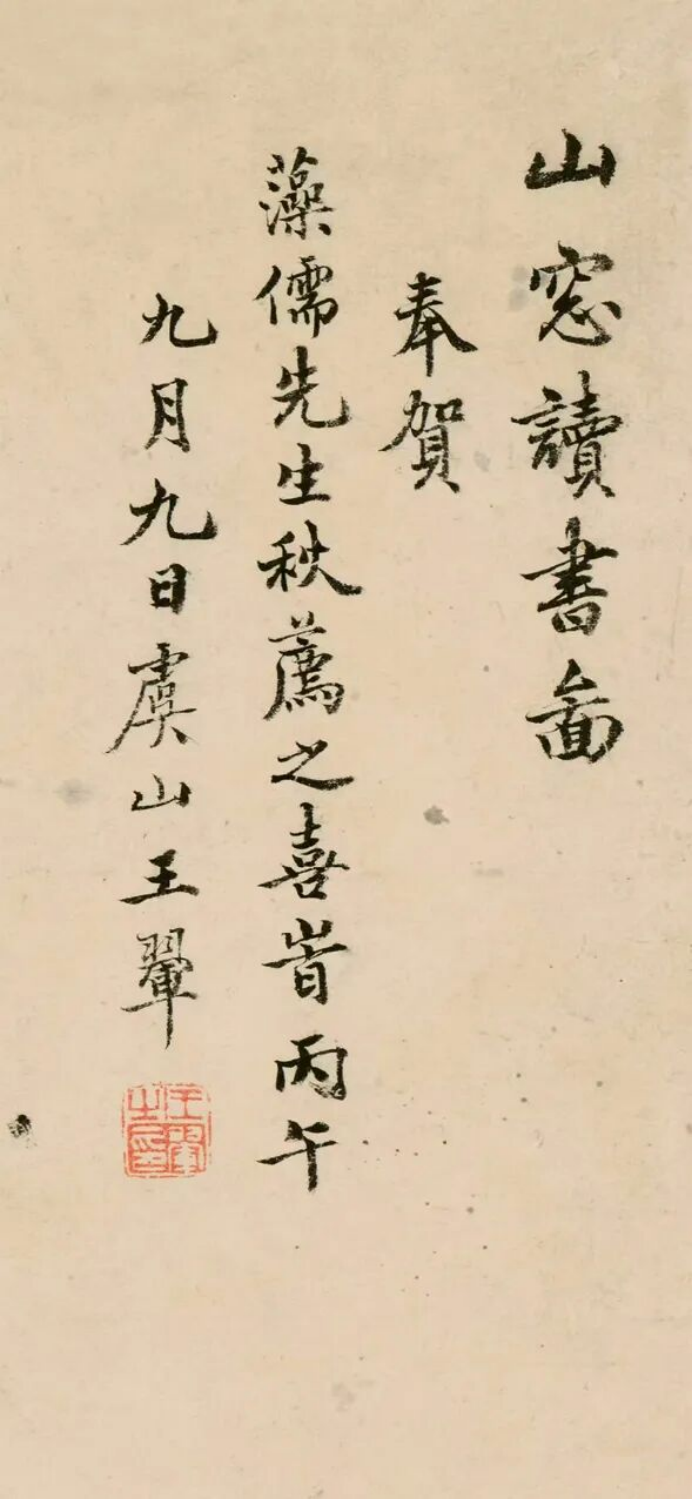 山窓讀書啚
奉賀
藻儒先生秋薦之喜旹丙午
九月九日虞山王翬
王翬之印